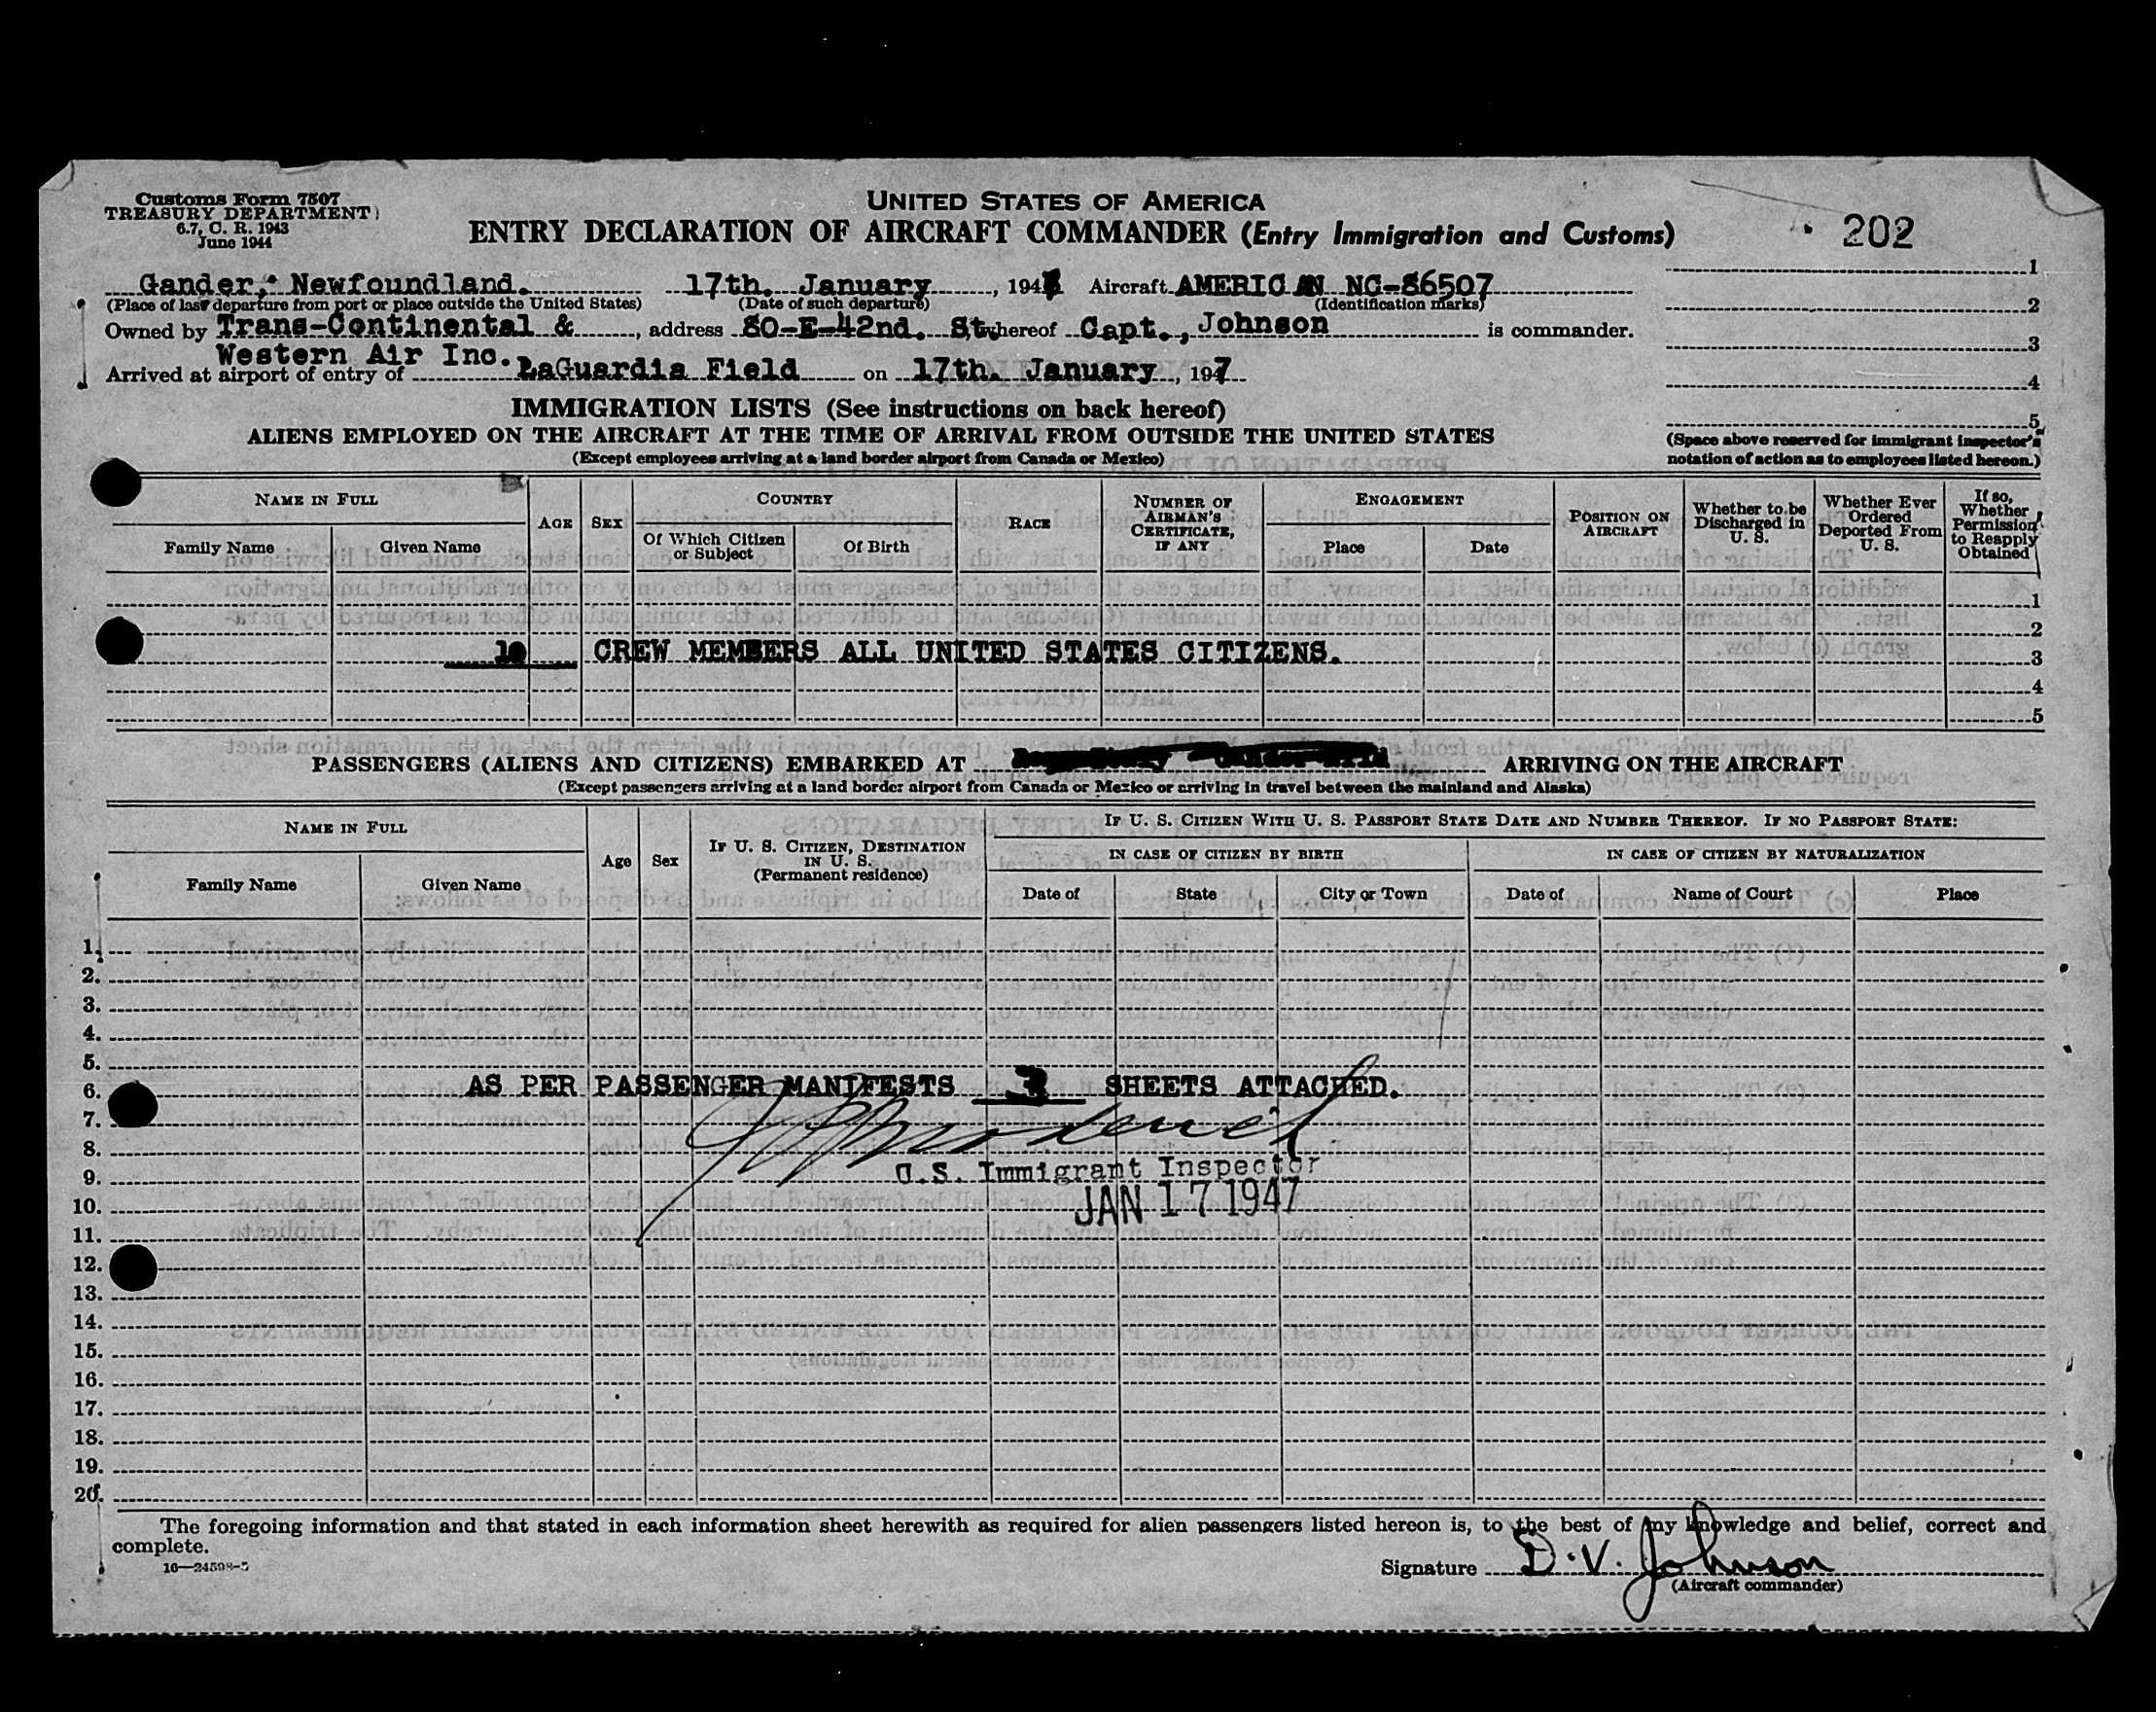 Customs Form 7507
TREASURY DEPARTMENT
6.7, C. R. 1943
June 1944
UNITED STATES OF AMERICA
ENTRY DECLARATION OF AIRCRAFT COMMANDER (Entry Immigration and Customs)
202
Gander, Newfoundland. 17th. January, 194 Aircraft AMERICAN NC-86507
(Place of last departure from port or place outside the United States) (Date of such departure) (Identification marks)
Owned by Trans-Continental &, address 80-E-42nd. St, whereof Capt., Johnson is commander.
Western Air Inc.
Arrived at airport of entry of LaGuardia Field on 17th. January, 1947
1
2
3
4
5
(Space above reserved for immigrant inspector's
notation of action as to employees listed hereon.)
IMMIGRATION LISTS (See instructions on back hereof)
ALIENS EMPLOYED ON THE AIRCRAFT AT THE TIME OF ARRIVAL FROM OUTSIDE THE UNITED STATES
(Except employees arriving at a land border airport from Canada or Mexico)
NAME IN FULL
Family Name Given Name
AGE
SEX
COUNTRY
Of Which Citizen or Subject
Of Birth
RACE
NUMBER OF AIRMAN'S CERTIFICATE, IF ANY
ENGAGEMENT
Place Date
POSITION ON AIRCRAFT
Whether to be Discharged in U. S.
Whether Ever Ordered Deported From U. S.
If so, Whether Permission to Reapply Obtained
1
2
10 CREW MEMBERS ALL UNITED STATES CITIZENS. 3
4
5
PASSENGERS (ALIENS AND CITIZENS) EMBARKED AT ARRIVING ON THE AIRCRAFT
(Except passengers arriving at a land border airport from Canada or Mexico or arriving in travel between the mainland and Alaska)
NAME IN FULL
Family Name Given Name
Age
Sex
IF U. S. CITIZEN, DESTINATION IN U. S.
(Permanent residence)
IF U. S. CITIZEN WITH U. S. PASSPORT STATE DATE AND NUMBER THEREOF. IF NO PASSPORT STATE:
IN CASE OF CITIZEN BY BIRTH IN CASE OF CITIZEN BY NATURALIZATION
Date of State City or Town Date of Name of Court Place
1.
2.
3.
4.
5.
6. AS PER PASSENGER MANIFESTS 3 SHEETS ATTACHED.
7.
8.
9. U.S. Immigrant Inspector
10. JAN 17 1947
11.
12.
13.
14.
15.
16.
17.
18.
19.
20.
The foregoing information and that stated in each information sheet herewith as required for alien passengers listed hereon is, to the best of my knowledge and belief, correct and
complete.
16—24598-
Signature D. V. Johnson
(Aircraft commander)